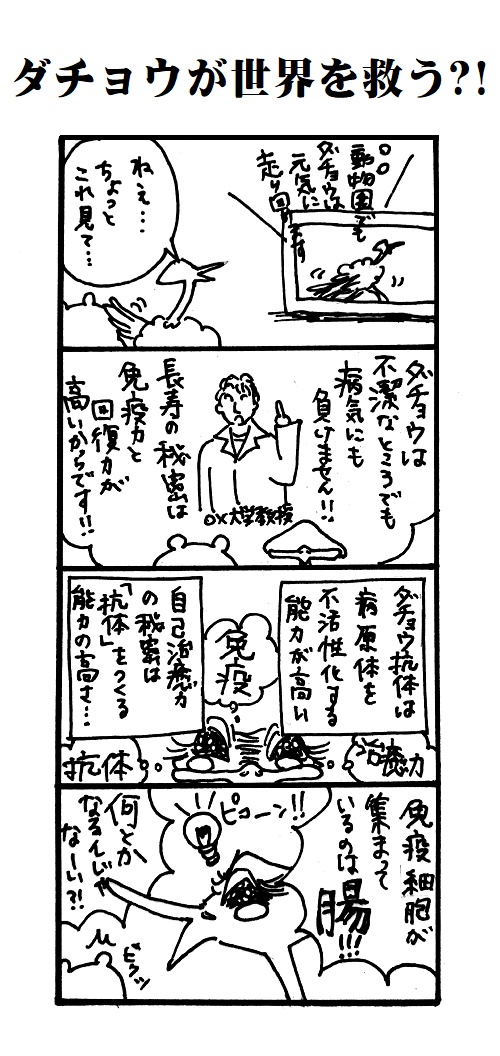 ダチョウが世界を救う?!
動物園でも
ダチョウは
元気に
走り回ります
ねぇ…
ちょっと
これ見て…
ダチョウは
不潔なところでも
病気にも
負けません!!
○×大学教授
長寿の秘密は
免疫力と
回復力が
高いからです!!
ダチョウ抗体は
病原体を
不活性化する
能力が高い
免疫
自己治癒力
の秘密は
「抗体」をつくる
能力の高さ…
治癒力
抗体
免疫細胞が
集まって
いるのは
腸!!!
ピコーン!!
何とか
なるんじゃ
なーい?!
ビクッ